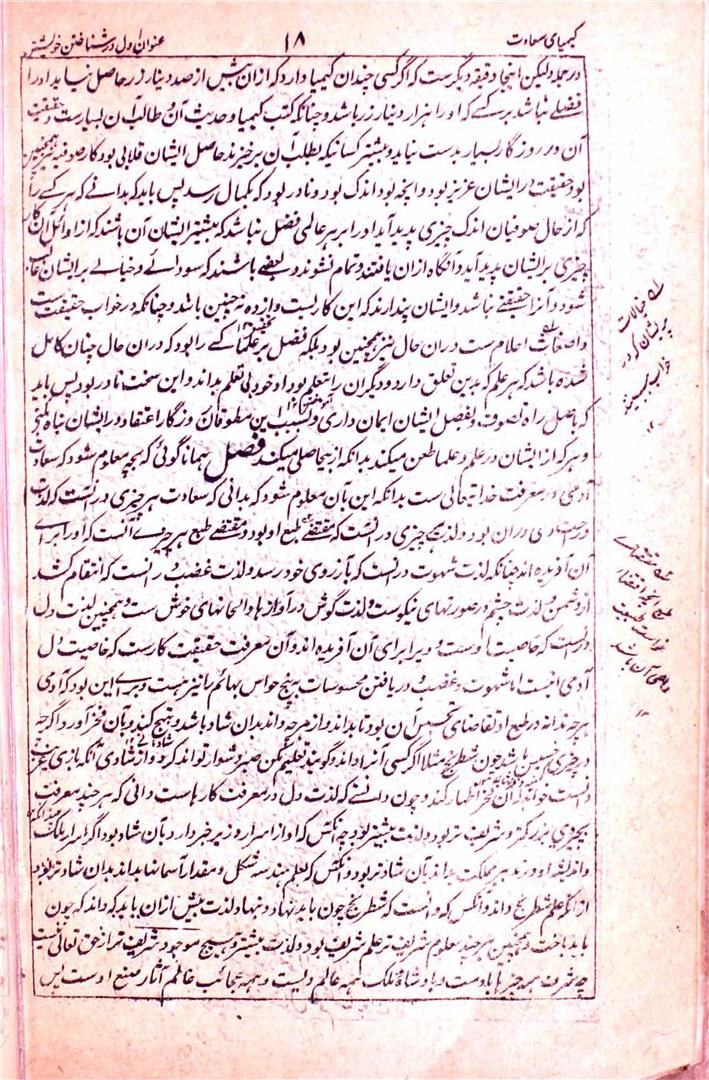 کیمیای سعادت ۱۸ عنوان اول در شناختن خویشتن
در جمله ولیکن اینجا دقیقه دیگرست که اگر کسی چندان کیمیا دارد که ازان بیش از صد دینار زر حاصل نیاید او را
فضلے نباشد بر کسے که او را هزار دینار زر باشد و چنانکه کتب کیمیا و حدیث آن و طالب آن بسیارست و حقیقت
آن در روزگار بسیار بدست نیاید و بیشتر کسانیکه بطلب آن برخیزند حاصل ایشان قلابی بود کار صوفیه نیز همچنین
بود حقیقت در ایشان عزیز بود و آنچه بود اندک بود و نادر بود که بکمال رسد پس باید که بدانے که هر کسے را
که از حال صوفیان اندک چیزی پدید آید او را بر هر عالمی فضل نباشد که بیشتر ایشان آن باشند که از اوائل آن کار
چیزی بر ایشان پدید آید و آنگاه ازان بیفتند و تمام نشوند و بعضے باشند که سودائے و خیالے بر ایشان غالب
شود و آنرا حقیقتے نباشد و ایشان پندارند که این کاریست و از ده نه چنین باشد و چنانکه در خواب حقیقت ست
و اضغاث احلام ست دران حال نیز همچنین بود بلکه فضل بر علما کسے را بود که دران حال چنان کامل
شده باشد که هر علم که بدین تعلق دارد و دیگران را بتعلم بود او خود بی تعلم بداند و این سخت نادر بود پس باید
که باصل راه تصوف و بفضل ایشان ایمان داری و بسبب این مطوقان روزگار اعتقاد در ایشان تباه نکنی
و هر که از ایشان در علم و علما طعن میکند بدانکه از بیحاصلی میکند فصل همانا گوئی که بچه معلوم شود که سعادت
آدمی در معرفت خدا تعالی ست بدانکه این بآن معلوم شود که بدانی که سعادت هر چیزی در آنست که لذت
و راحت وی دران بود و لذت هر چیزی در آنست که مقتضے طبع او بود و مقتضے طبع هر چیزے آنست که او را برای
آن آفریده اند چنانکه لذت شهوت در آنست که بآرزوی خود رسد و لذت غضب در آنست که انتقام کشد
از دشمن و لذت چشم در صورتهای نیکوست و لذت گوش در آوازها و الحانهای خوش ست و همچنین لذت دل
در آنست که خاصیت اوست و ویرا برای آن آفریده اند و آن معرفت حقیقت کارست که خاصیت دل
آدمی اینست اما شهوت و غضب و دریافتن محسوسات به پنج حواس بهائم را نیز هست و برای این بود که آدمی
هر چه نداند در طبع او تقاضای تجسس آن بود تا بداند و از هر چه داند بدان شاد باشد و تبجح کند و بآن فخر آورد اگرچه
در چیزی خسیس باشد چون شطرنج مثلا اگر کسی آنرا داند و گویند تعلیم مکن صبر دشوار تواند کرد و از شادی آنکه بازی غریب
دانست خواهد که آن فخر اظهار کند و چون دانستے که لذت دل در معرفت کارهاست دانی که هر چند معرفت
بچیزی بزرگتر و شریف تر بود لذت بیشتر بود چه آنکس که او از اسرار وزیر خبر دارد بآن شاد بود اگر اسرار ملک
و اندیشه او در تدبیر مملکت بداند بآن شادتر بود و آنکس که بعلم هندسه شکل و مقدار آسمانها بداند بدان شادتر بود
از آنکه علم شطرنج داند و آنکس که دانست که شطرنج چون باید نهاد و نهاد لذت بیش ازان یابد که داند که چون
باید باخت و همچنین هر چند معلوم شریف تر علم شریف تر بود و لذت بیشتر و هیچ موجود شریف تر از حق تعالی نیست
چه شرف همه چیزها بدوست و پادشاه و ملک همه عالم ویست و همه عجائب عالم آثار صنع اوست پس
له خیالات
پریشان که در
خواب بینند
۱۲